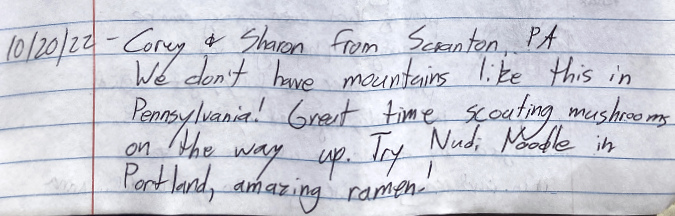 10/20/22 - Corey & Sharon from Scranton, PA
We don't have mountains like this in
Pennsylvania! Great time scouting mushrooms
on the way up. Try Nudi Noodle in
Portland, amazing ramen!